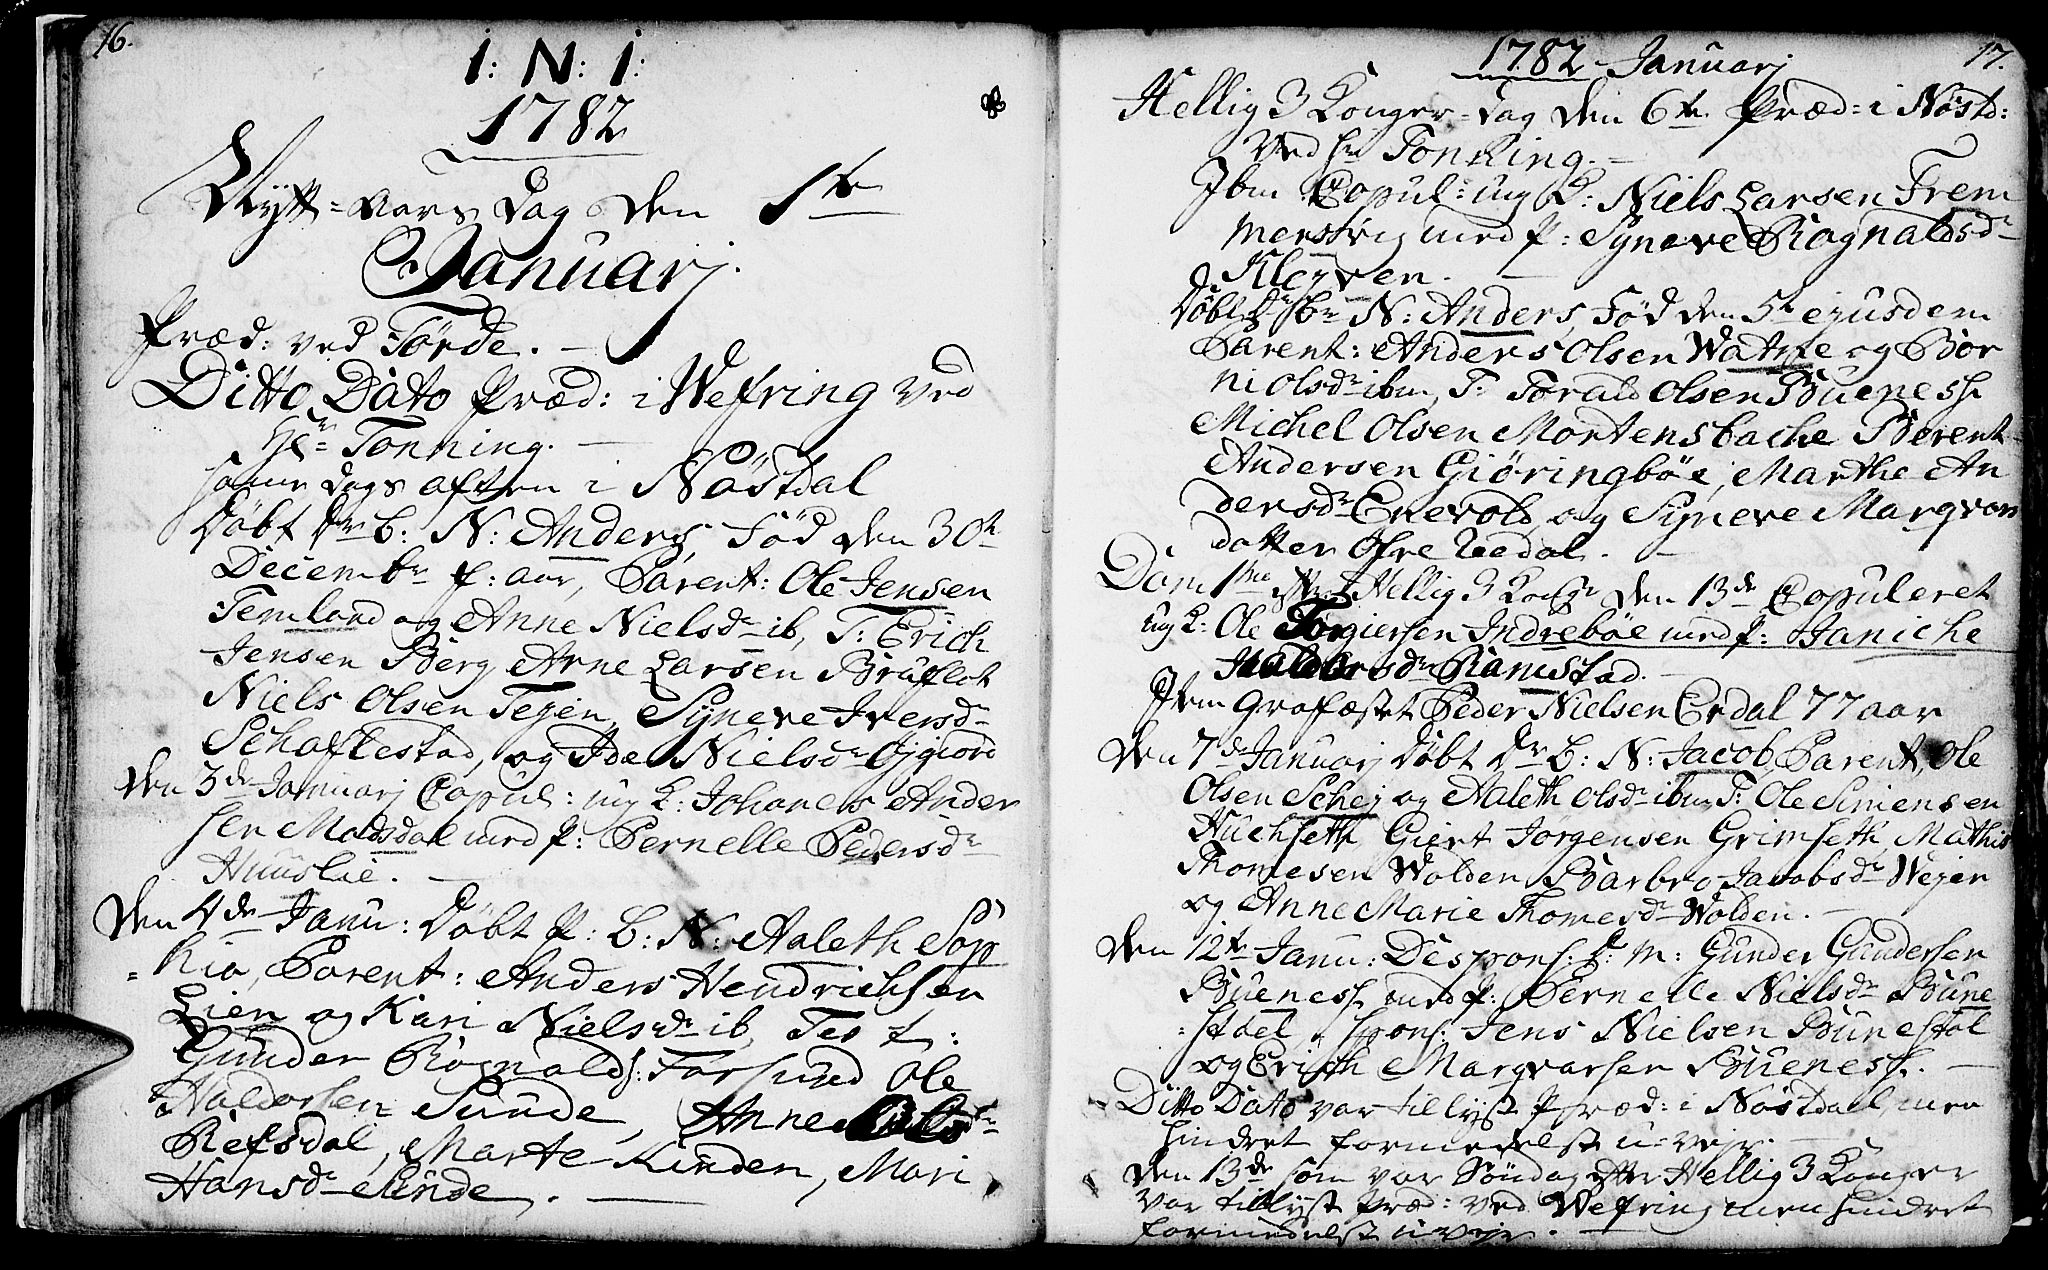 16.
I: N: I:
1782
Nytt-aars Dag den 1te
Januarj.
Præd: ved Førde. —
Ditto Dato Præd: i Wefring ved
Hr Tonning. —
samme Dags aften i Nöstdal
Döbt Dr B: N: Anders, Fød den 30te
Decembr f: aar, Parent: Ole Jensen
Temland og Anne Nielsdr ib, T: Erich
Jensen Berg Arne Larsen Bruflot
Niels Olsen Tejen, Syneve Iversdr
Schaflestad, og Ide Nielsdr Öjgiord
Den 3de Januarj Copul: ug K: Johanes Ander
sen Madsdal med P: Pernelle Pedersdr
Huuslie. —
Den 4de Janu: Döbt P: B: N: Aleth Sop
hia, Parent: Anders Hendrichsen
Lien og Kari Nielsdr ib, Test:
Gunder Rognalds: Farsund Ole
Haldorsen Sunde, Anne Nielsdr
Refsdal, Marte Kinden, Mari
Hansdr Sunde. —
1782 Januarj 17.
Hellig 3 Konger-Dag den 6te Præd: i Nöstd:
ved Hr Tonning. —
Ibm Copul: ug K: Niels Larsen Frem
mersvig med P: Syneve Rognaldsdr
Kleyven. —
Döbt Dr B N: Anders, Fød den 5te ejusdem
Parent: Anders Olsen Watne og Bor
ni Olsdr ibm, T: Torald Olsen Bueness
Michel Olsen Mortensbache Berent
Andersen Giöringböe, Marthe An
dersdr Enevold og Syneve Marqvors
datter Öfre Eedal. —
Dom 1me efter Hellig 3 Kong: den 13de Copuleret
ug K: Ole Torgiersen Indreböe med P: Janiche
Haldorsdr Ramstad. —
Item Grafæstet Peder Nielsen Erdal 77 aar
Den 7de Januarj Döbt Dr B: N: Jacob, Parent, Ole
Olsen Schej og Aleth Olsdr ibm T: Ole Simensen
Huchseth Giert Jörgensen Grimseth Mathis
Thomesen Wolden Barbro Jacobsdr Wejen
og Anne Marie Thomesdr Wolden. —
Den 12te Janu: Despons: K: M: Gunder Gundersen
Bueness med P: Pernelle Nielsdr Bune
stdel, spons: Jens Nielsen Bunestøl
og Erich Marqvarsen Bueness. —
Ditto Dato var tillyst Præd: i Nöstdal, men
hindret formedelst u-vejr. —
Den 13de som var Söndag efter Hellig 3 Konger
var tillyst Præd: ved Wefring men hindret
formedelst u-vejr. —